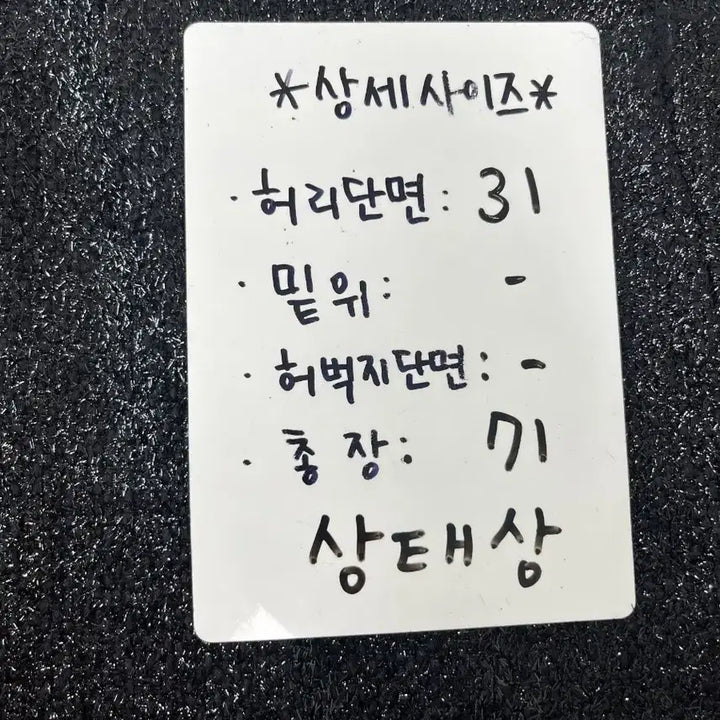 *상세사이즈*
· 허리단면: 31
· 밑위: -
· 허벅지단면: -
· 총장: 71
상태상